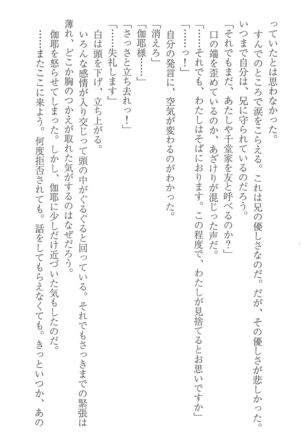 っていたとは思わなかった。
すんでのところで涙をこらえる。これは兄の優しさなのだ。だが、その優しさが悲しかった。
いつまで自分は、兄に守られているのだろう。
「それでもまだ、あたしや千堂家を友と呼べるのか？」
口の端を歪めているのか、あざけりが混じった声だ。
「……それでも、わたしはそばにおります。この程度で、わたしが見捨てるとお思いですか」
「……っ！」
自分の発言に、空気が変わるのがわかった。
「消えろ」
「伽耶様……」
「さっさと立ち去れっ！」
「……失礼します」
白は頭を下げ、立ち上がる。
いろんな感情が入り交じって頭の中がぐるぐると回っている。それでもさっきまでの緊張は
薄れ、どこか胸のつかえが取れた気がするのはなぜだろう。
伽耶を怒らせてしまった。しかし、伽耶に少しだけ近づいた気もしたのだ。
……またここに来よう。何度拒否されても、話をしてもらえなくても。きっといつか、あの